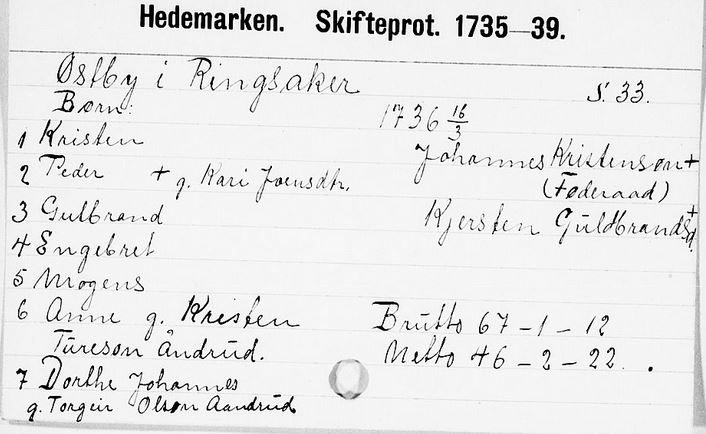 Hedemarken. Skifteprot. 1735—39.
Østby i Ringsaker
S. 33.
Børn:
1736 16/3
1 Kristen
Johannes Kristensøn +
2 Peder + g. Kari Joensdtr.
(Føderaad)
3 Gulbrand
Kjersten Guldbrandsd. +
4 Engebret
5 Mogens
6 Anne g. Kristen
Brutto 67 - 1 - 12
Tureson Åndrud.
Netto 46 - 2 - 22.
7 Dorthe Johannes
g. Torgeir Olson Aandrud.